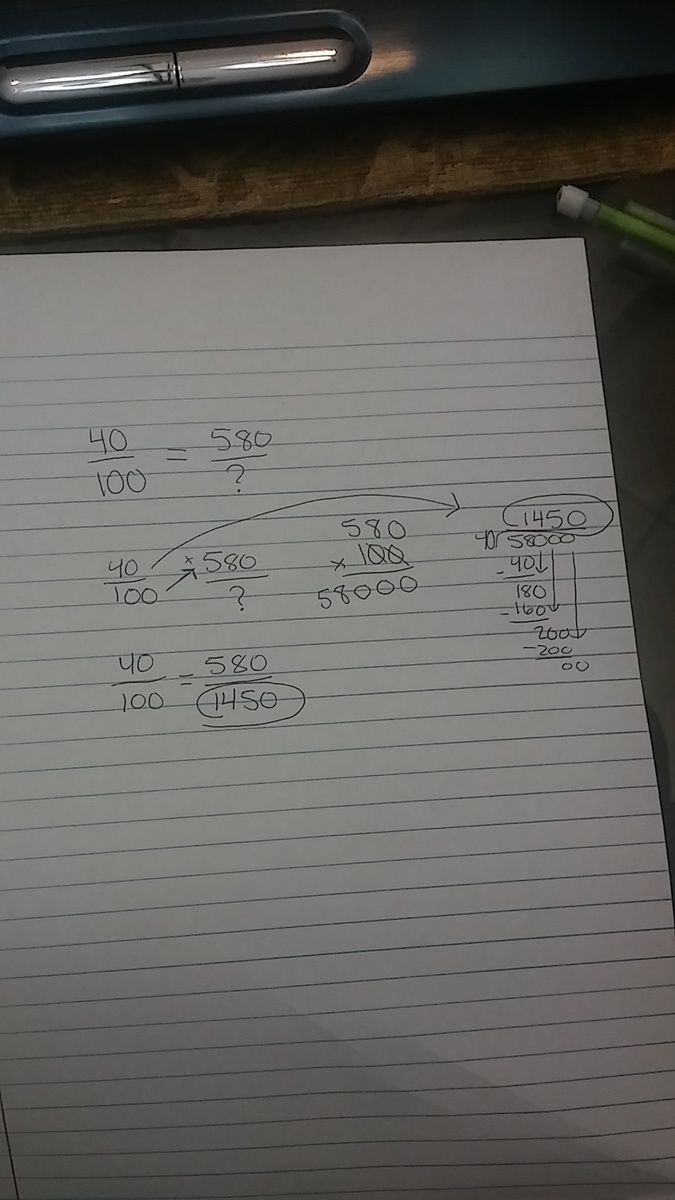 40 580
— = —
100 ?
40 × 580
— —
100 ?
580
× 100
58000
1450
40 58000
- 40
180
- 160
200
- 200
00
40 580
— = —
100 1450